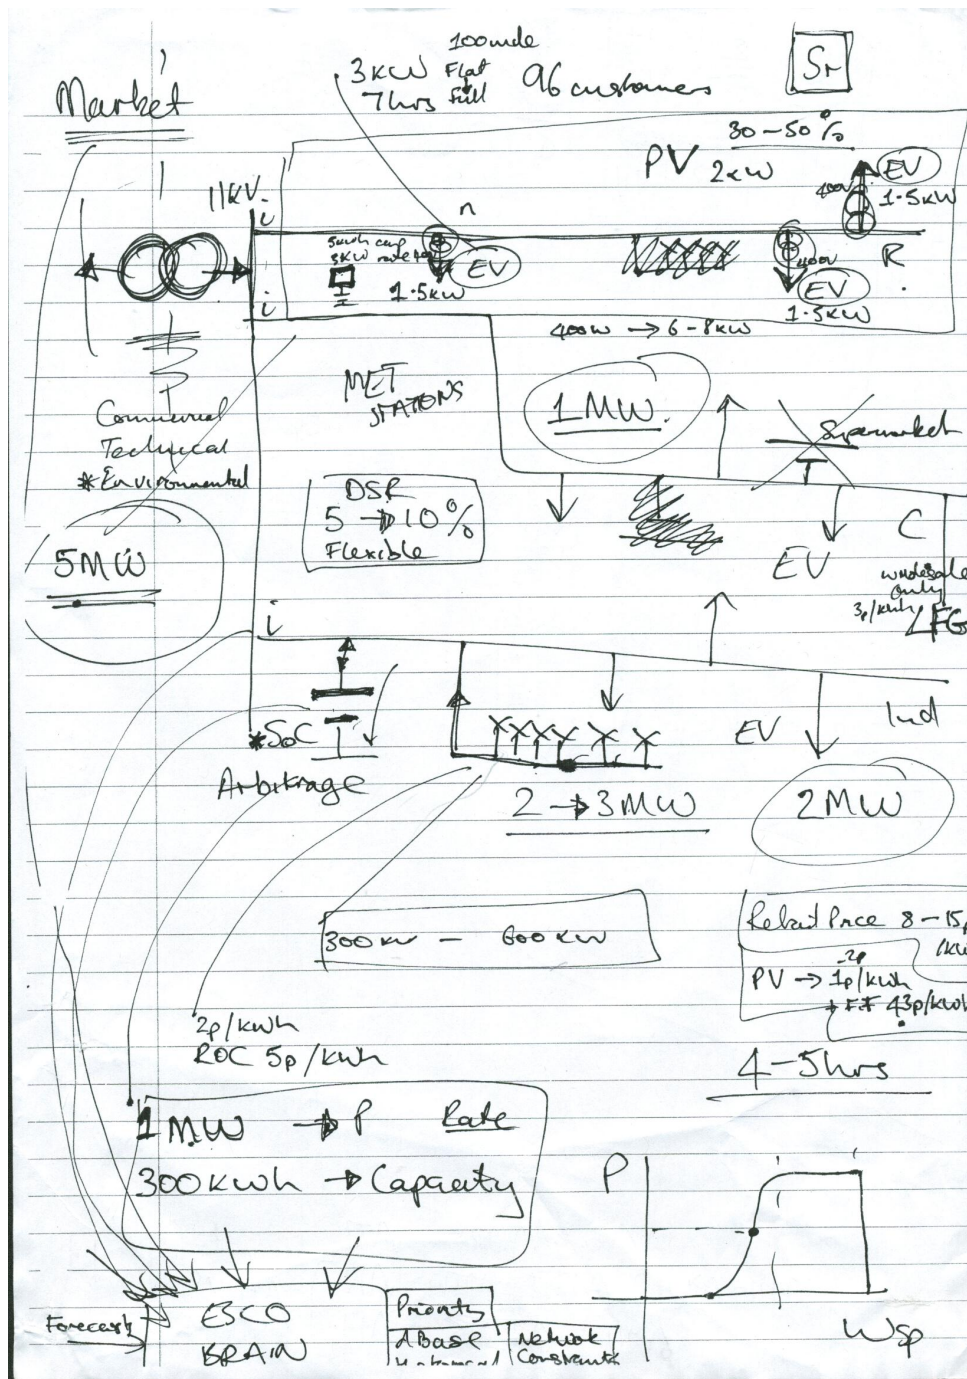 100mile
3KW Flat
7hrs full
96 customers
Market
30-50%
PV 2KW
EV
400W
1.5KW
11KV
i
n
3KW
EV
1.5KW
400W
EV
1.5KW
R
i
400W → 6-8KW
MET
STATIONS
1MW
Supermarket
Commercial
Technical
*Environmental
DSR
5 → 10%
Flexible
5MW
EV
C
wholesale
only
3p/kwh
LFG
i
*SoC
Arbitrage
EV
Ind
2 → 3MW
2MW
300KW - 600KW
Price 8-15p
PV → 1p/kwh
43p/kwh
2p/kwh
ROC 5p/kwh
4-5hrs
1MW → P Rate
300Kwh → Capacity
P
Wsp
Forecasts
ESCO
BRAIN
Priority
Network
Constraints